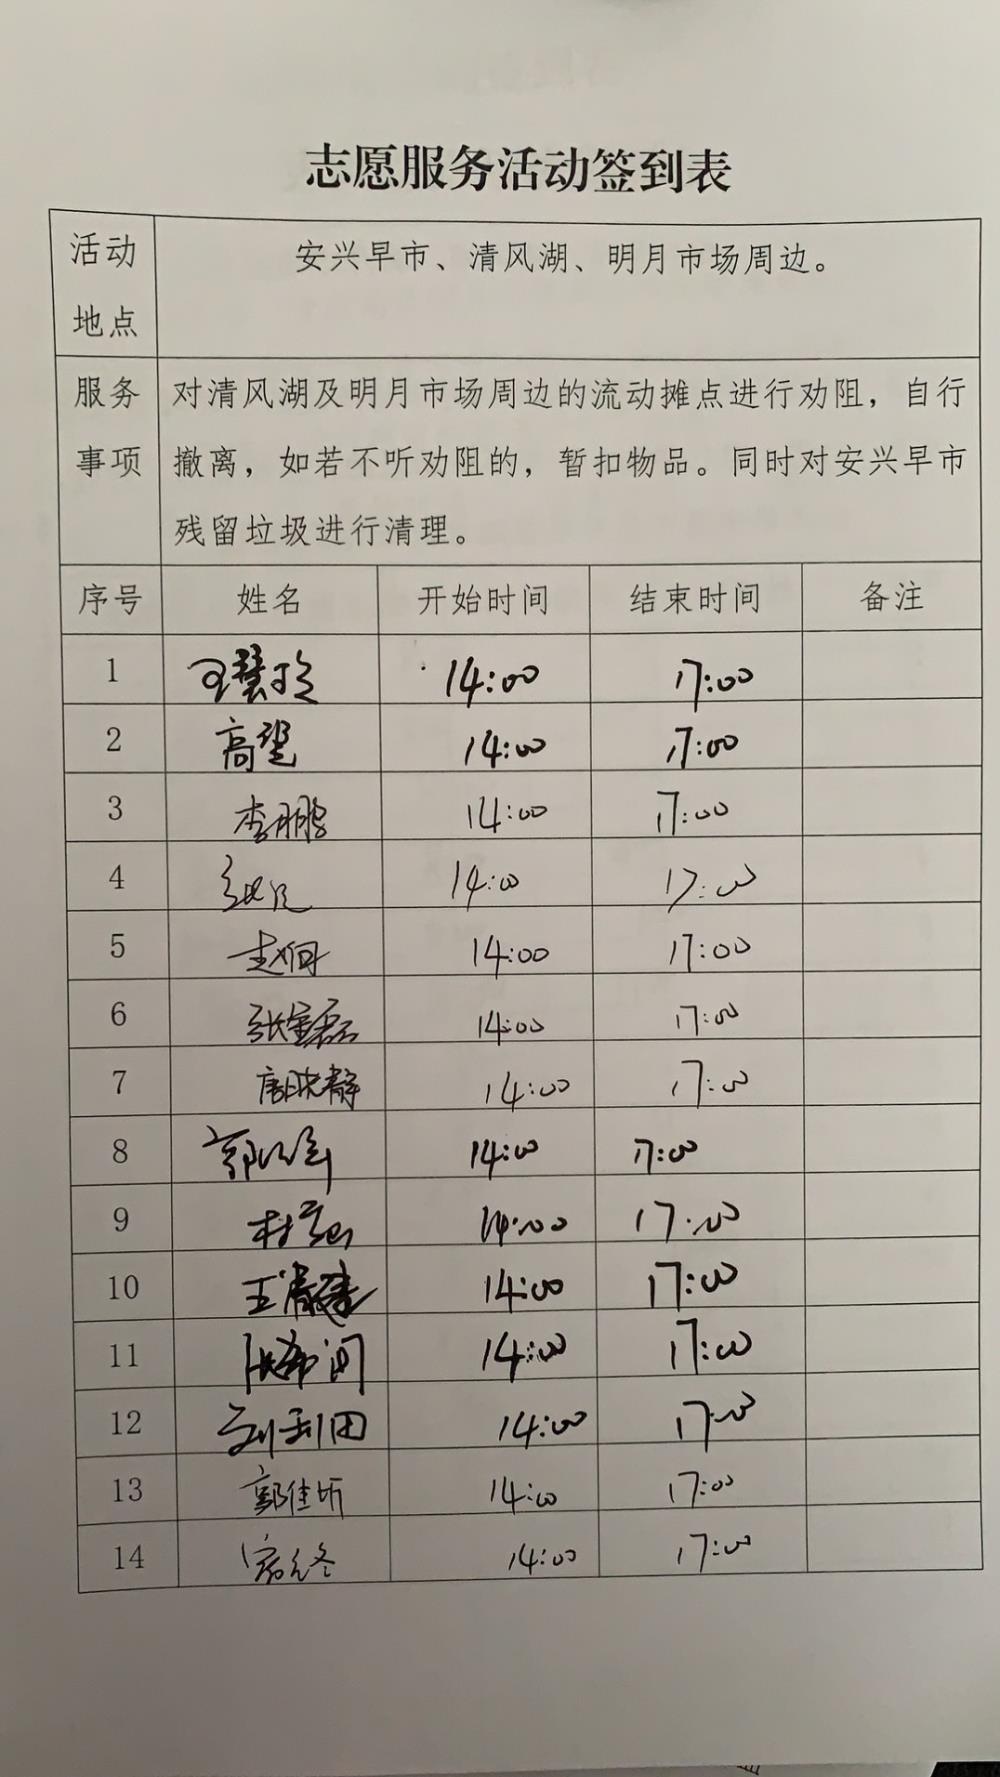 志愿服务活动签到表
活动地点 安兴早市、清风湖、明月市场周边。
服务事项 对清风湖及明月市场周边的流动摊点进行劝阻，自行
撤离，如若不听劝阻的，暂扣物品。同时对安兴早市
残留垃圾进行清理。
序号 姓名 开始时间 结束时间 备注
1 14:00 17:00
2 高望 14:00 17:00
3 李鹏 14:00 17:00
4 14:00 17:00
5 14:00 17:00
6 张宝磊 14:00 17:00
7 唐晓静 14:00 17:00
8 14:00 17:00
9 14:00 17:00
10 14:00 17:00
11 14:00 17:00
12 刘利田 14:00 17:00
13 郭佳昕 14:00 17:00
14 14:00 17:00